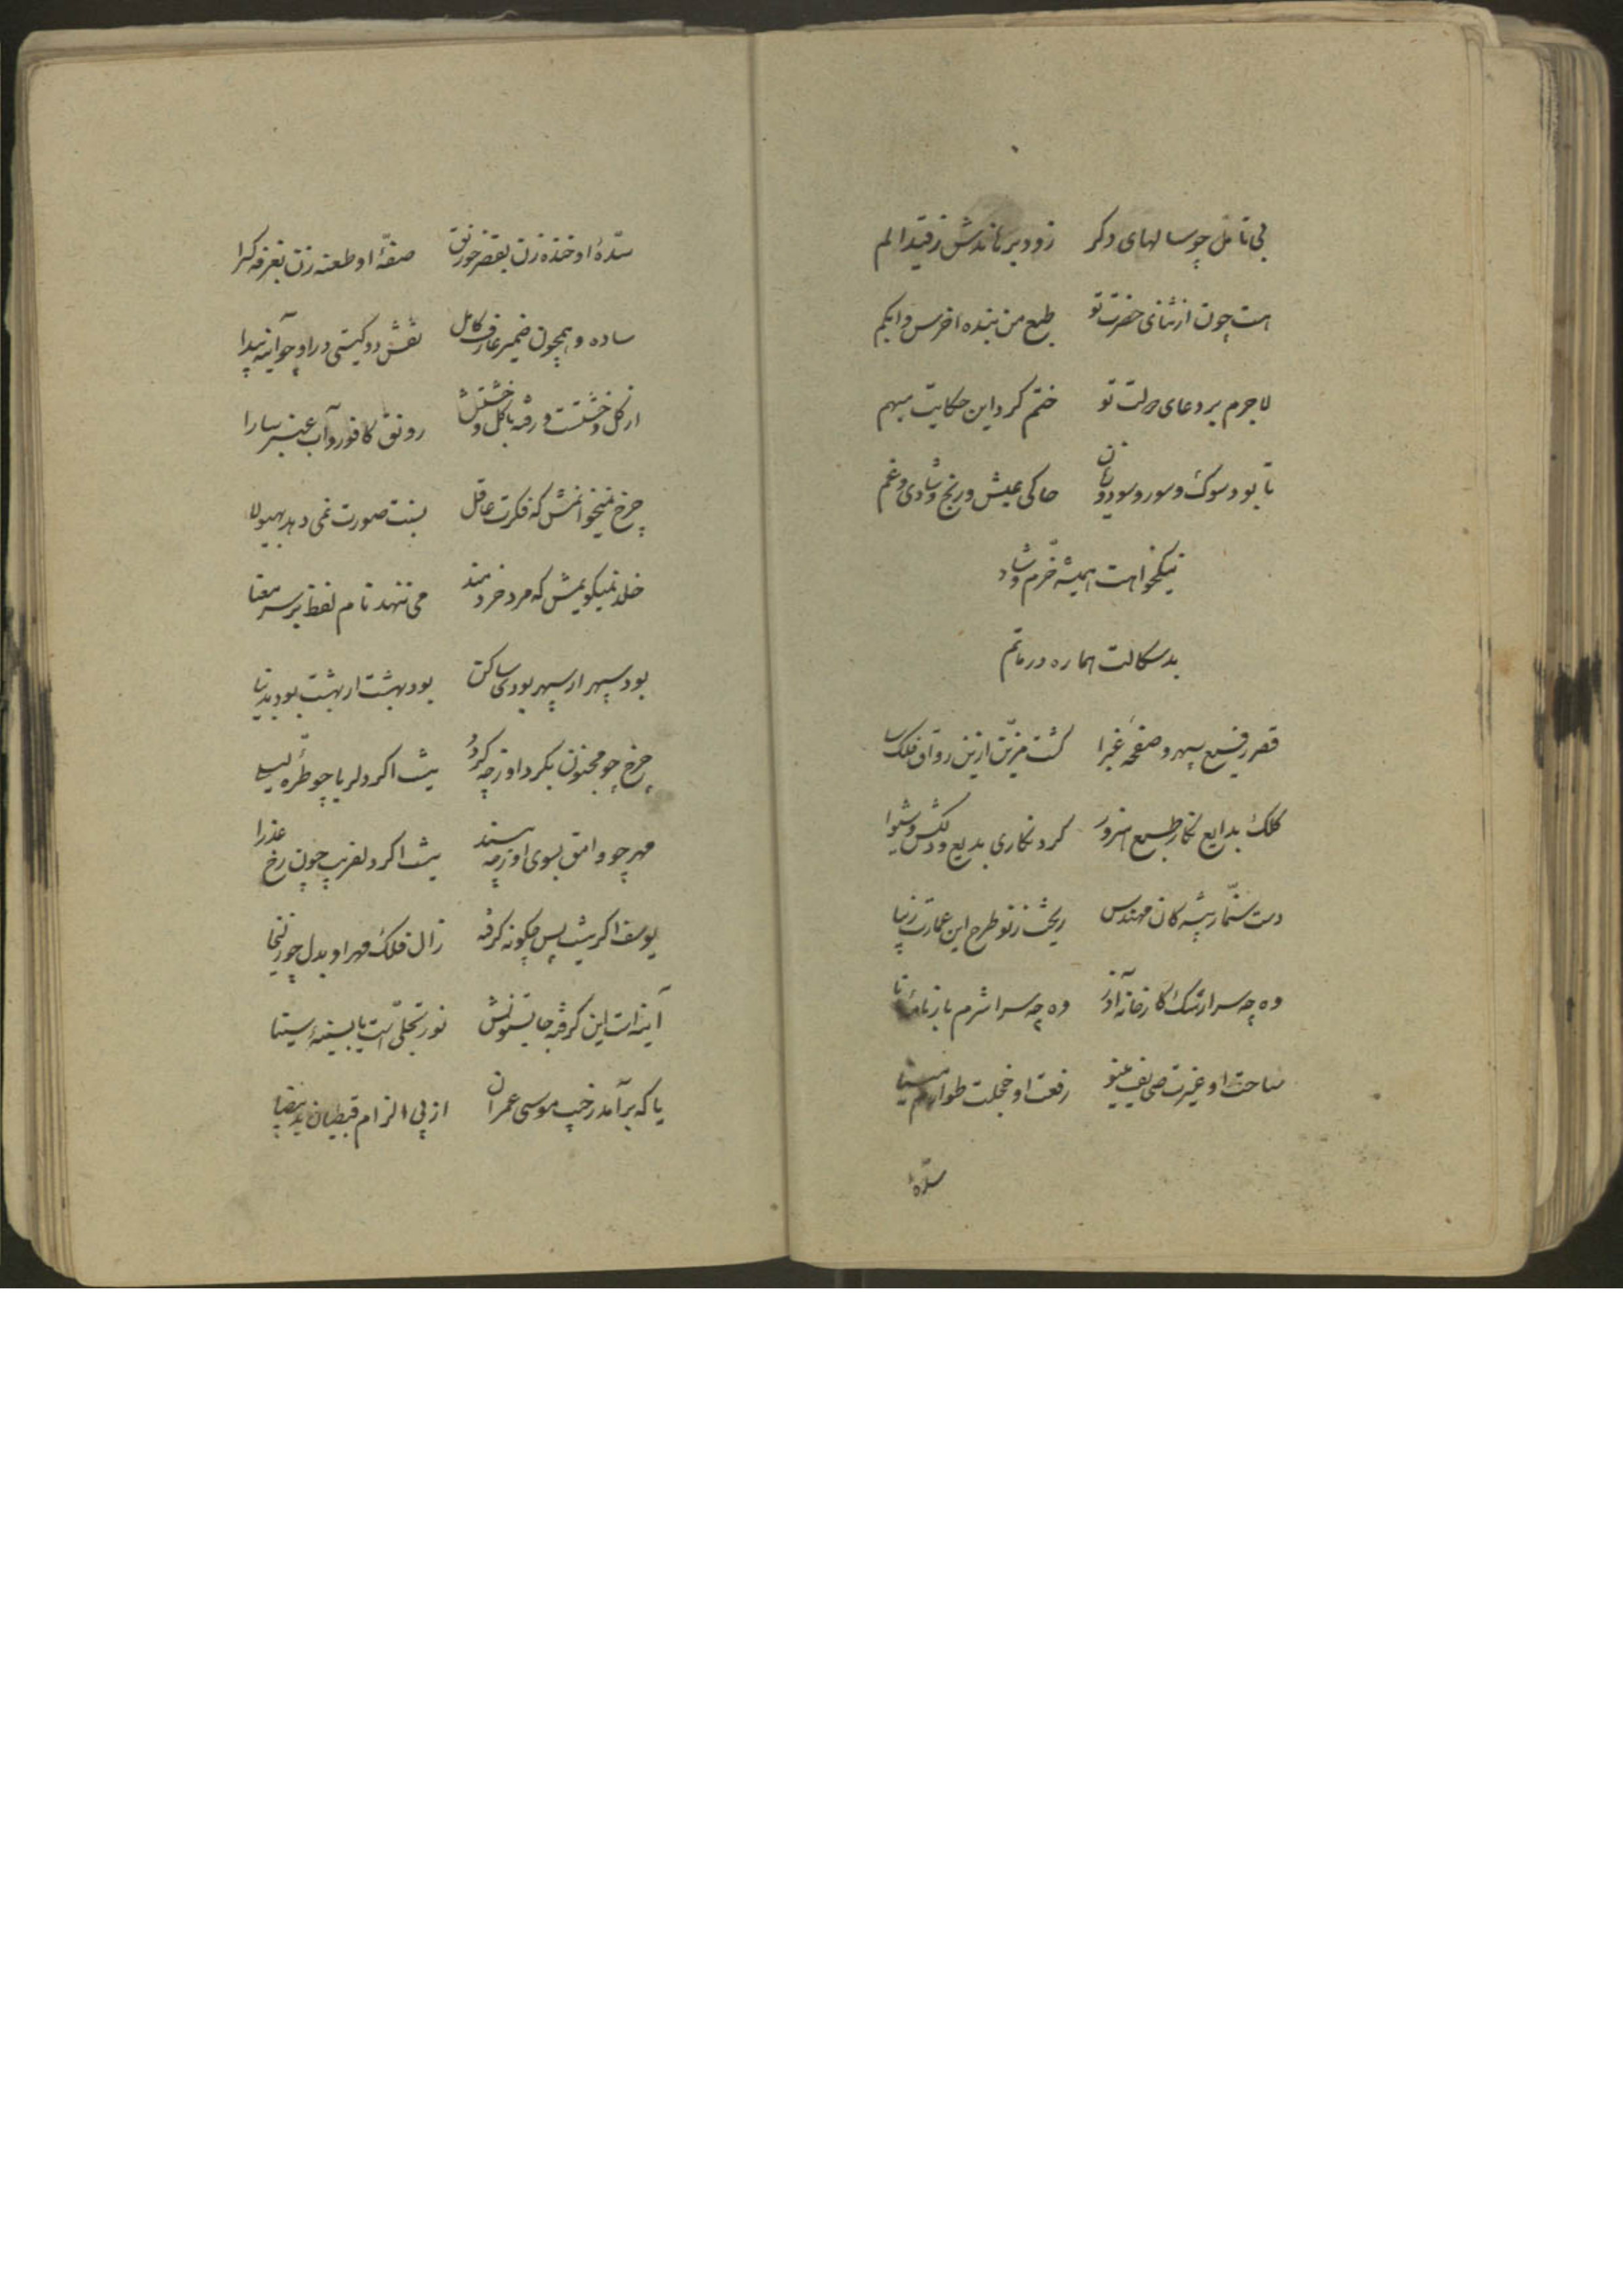 بی تامل چو سالهای دکر زود برهاندش ز قید الم
هست چون از ثنای حضرت تو طبع من بنده اخرس و ابکم
لاجرم بر دعای دولت تو ختم کرد این حکایت مبهم
تا بود سوک و سور و سود و زیان حاکی عیش و رنج و شادی و غم
نیکخواهت همیشه خرّم و شاد
بدسکالت هماره در ماتم
قصر رفیع سپهر و صفحهٔ غبرا کشت مزیّن ازین رواق فلک سا
کلک بدایع نکار طبع هنرور کرد نکاری بدیع و دلکش و شیوا
دست سنمّار پیشه کان مهندس ریخت ز نو طرح این عمارت زیبا
وه چه سرا رشک کارخانه آذر وه چه سرا شرم بارنامهٔ مانا
ساحت او غیرت صحایف مینو رفعت او خجلت طوارم مینا
سدّهٔ
سدّهٔ او خنده زن بقصر خورنق صفّهٔ او طعنه زن بغرفه کسرا
ساده و همچون ضمیر عارف کامل نقش دو کیتی در او چو آینه پیدا
از کل و خشتست و رفته با کل و خشتش رونق کافور و آب عنبر سارا
چرخ نمیخوانمش که فکرت عاقل نسبت صورت نمی دهد بهیولا
خلد نمیکویمش که مرد خردمند می ننهد نام لفظ بر سر معنا
بود سپهر ار سپهر بودی ساکن بود بهشت ار بهشت بود بدنیا
چرخ چو مجنون بکرد او ز چه کردد نیست اکر دلربا چو طرّه لیلی
مهر چو وامق بسوی او ز چه بیند نیست اکر دلفریب چون رخ عذرا
یوسف اکر نیست پس چکونه کرفته زال فلک مهر او بدل چو زلیخا
آینه است این کرفته جا بستونش نور تجلّی است یا بسینهٔ سینا
یا که برآمد ز جیب موسی عمران از پی الزام قبطیان ید بیضا